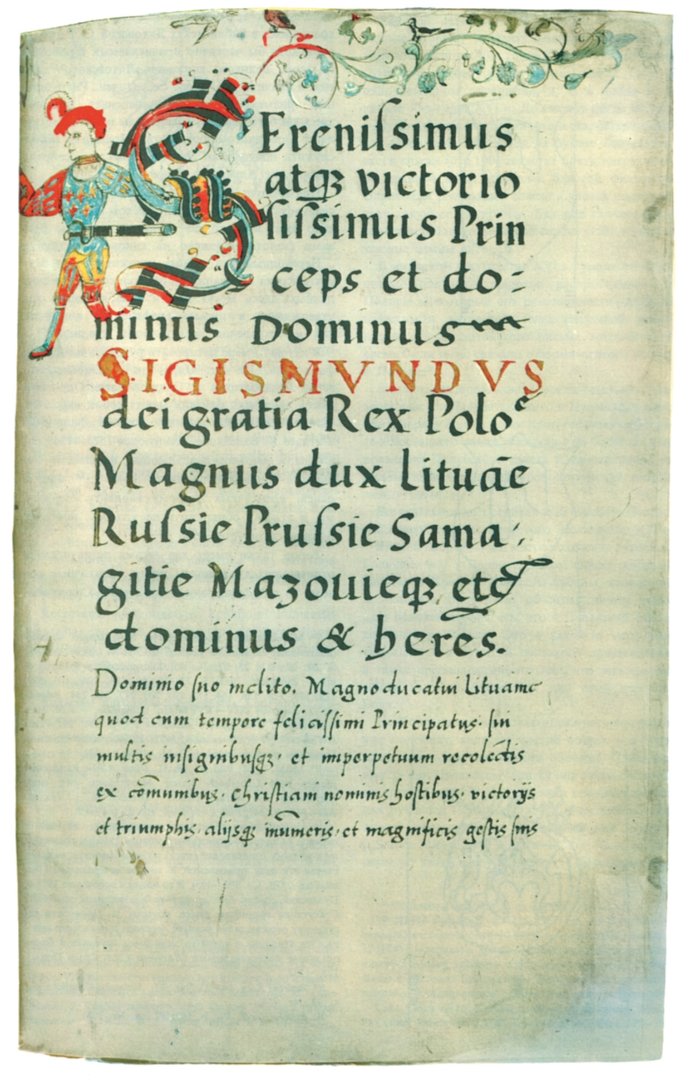 SEreniſsimus
atqꝫ victorio
ſiſsimus Prin
ceps et do:
minus Dominus
SIGISMVNDVS
dei gratia Rex Poloᵉ
Magnus dux Lituāe
Ruſsie Pruſsie Sama:
gitie Mazouieqꝫ etc
dominus & heres.
Dominio ſuo inclito. Magnoducatui Lituanie
quod eum tempore feliciſſimi Principatus. ſui
multis inſignibuſqꝫ. et imperpetuum recolectis
ex cōmunibus. Chriſtiani nominis hoſtibus. victorijs
et triumphis. alijsqꝫ inūmeris. et magnificis geſtis ſuis